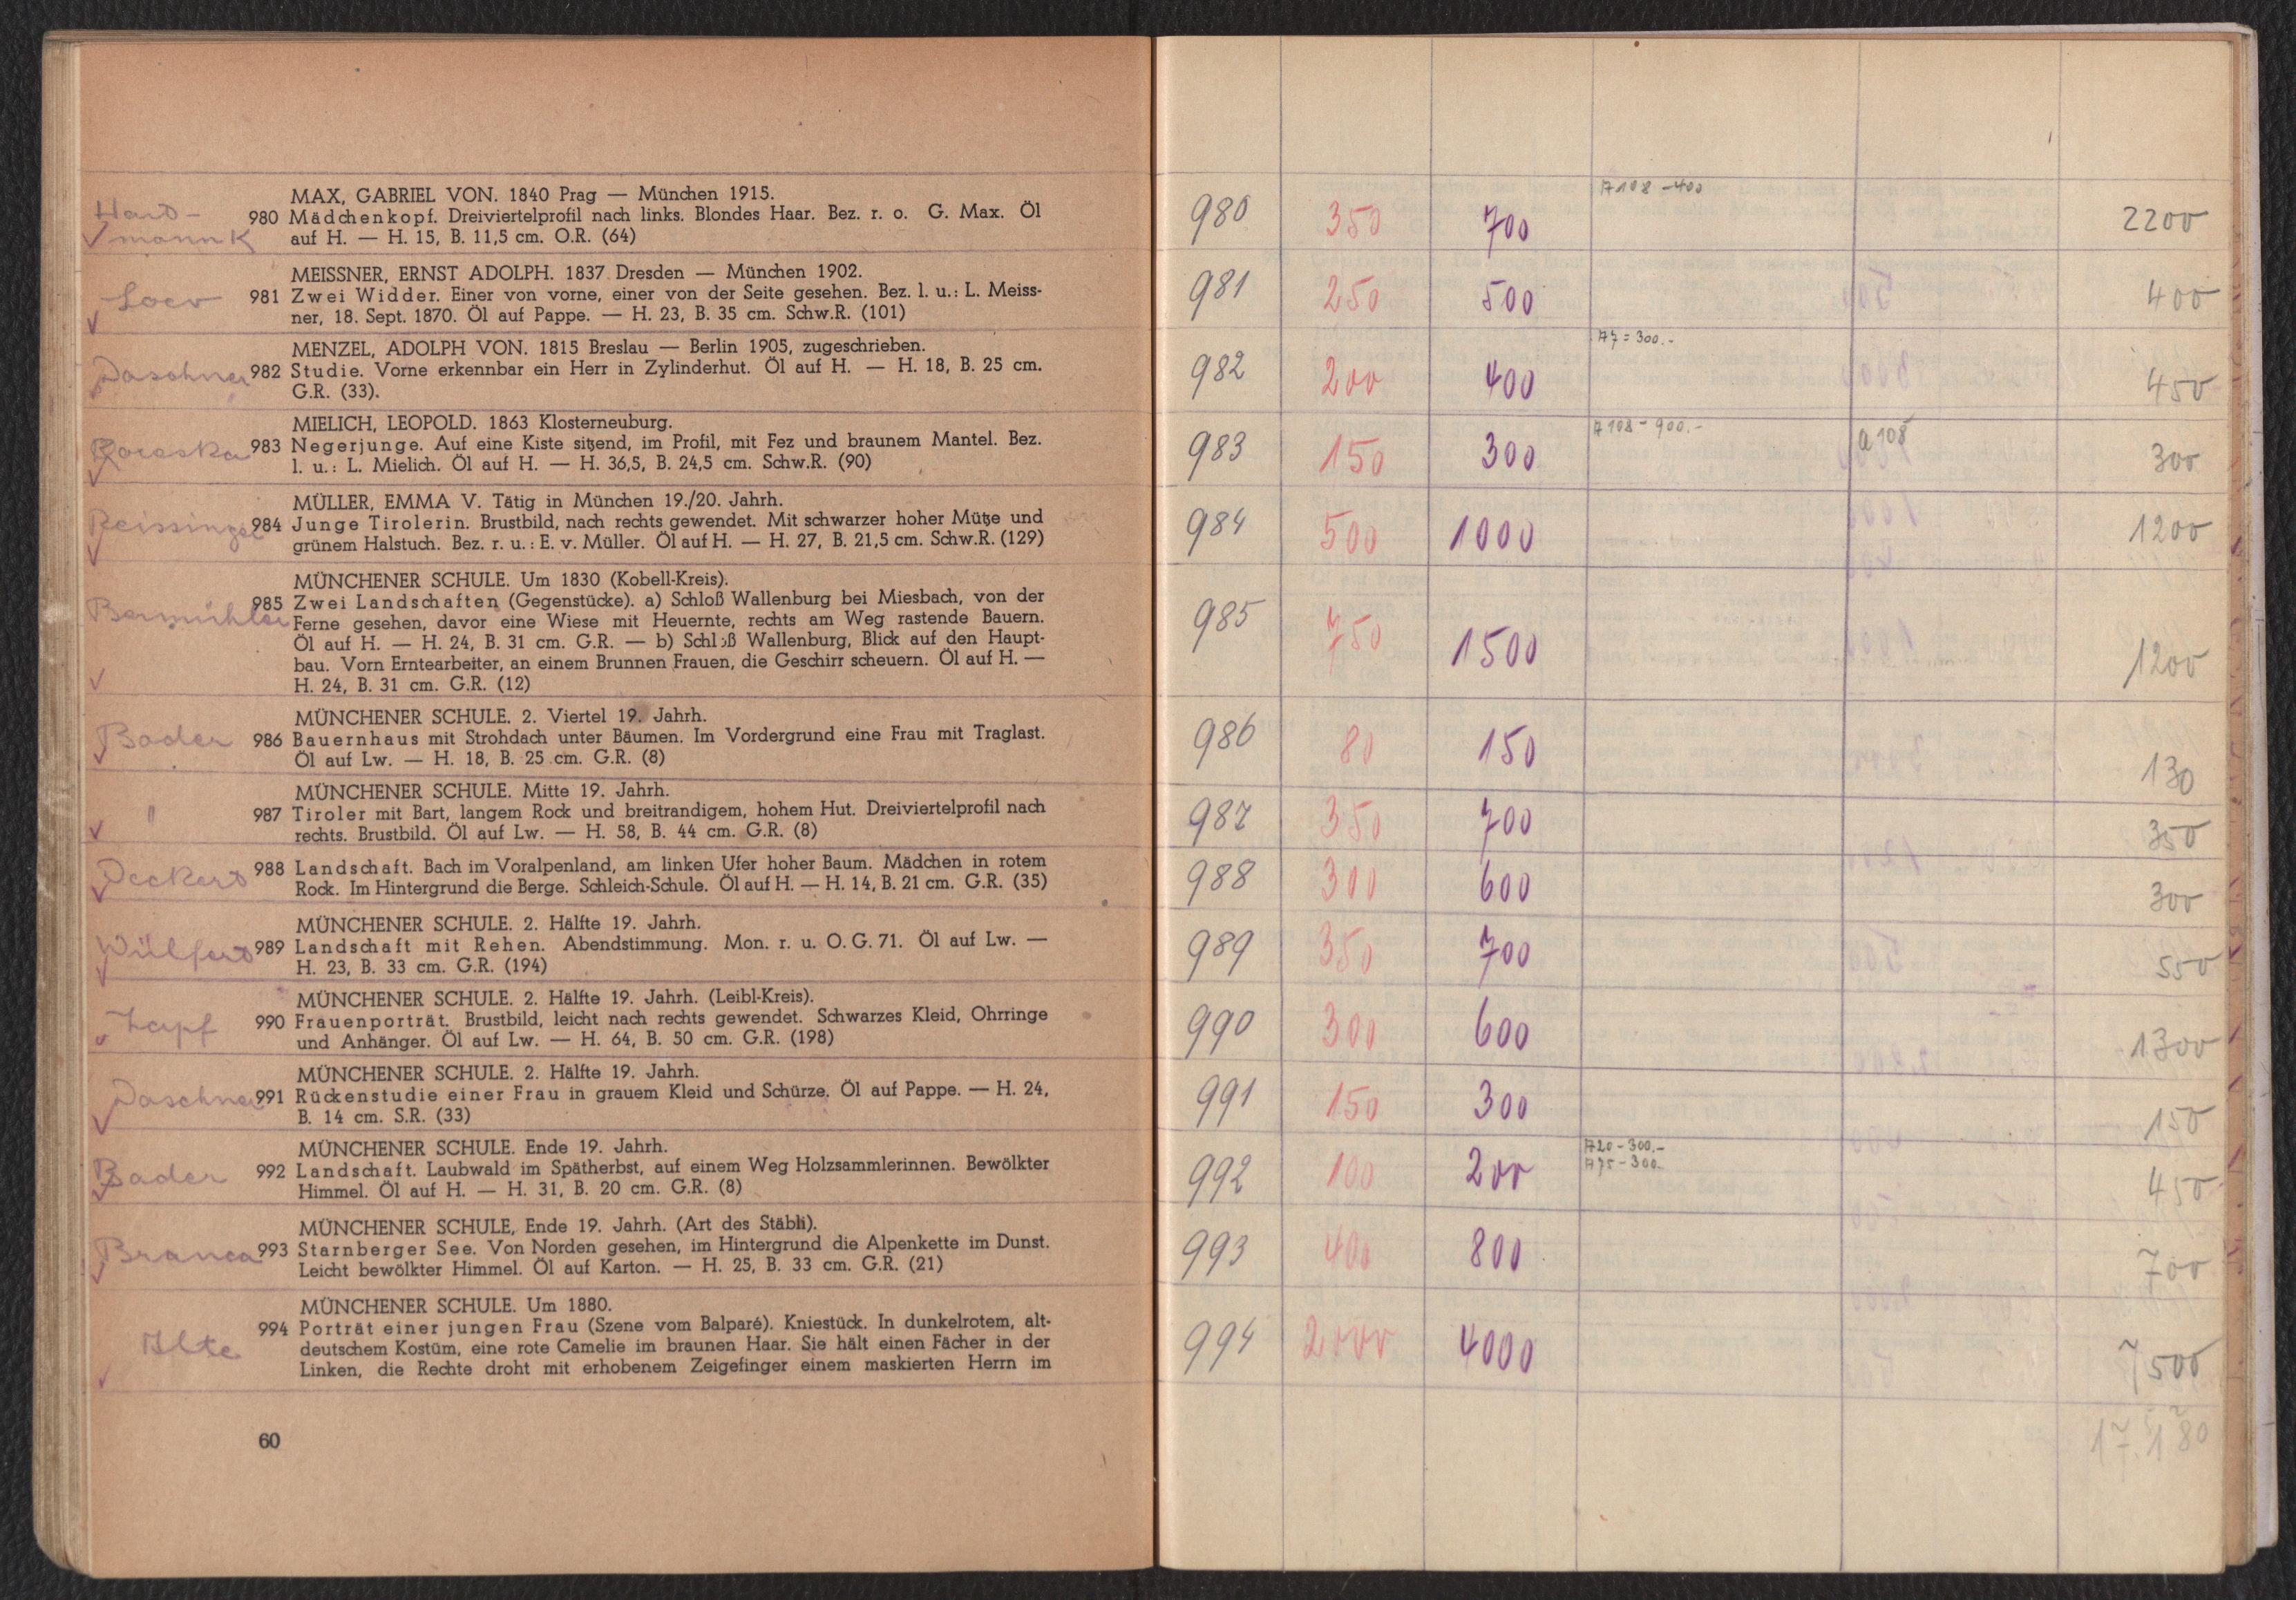 MAX, GABRIEL VON. 1840 Prag — München 1915.
Hart-
980 Mädchenkopf. Dreiviertelprofil nach links. Blondes Haar. Bez. r. o. G. Max. Öl
mann K
auf H. — H. 15, B. 11,5 cm. O.R. (64)
MEISSNER, ERNST ADOLPH. 1837 Dresden — München 1902.
981 Zwei Widder. Einer von vorne, einer von der Seite gesehen. Bez. l. u.: L. Meiss-
ner, 18. Sept. 1870. Öl auf Pappe. — H. 23, B. 35 cm. Schw.R. (101)
MENZEL, ADOLPH VON. 1815 Breslau — Berlin 1905, zugeschrieben.
Daschner 982 Studie. Vorne erkennbar ein Herr in Zylinderhut. Öl auf H. — H. 18, B. 25 cm.
G.R. (33).
MIELICH, LEOPOLD. 1863 Klosterneuburg.
983 Negerjunge. Auf eine Kiste sitzend, im Profil, mit Fez und braunem Mantel. Bez.
l. u.: L. Mielich. Öl auf H. — H. 36,5, B. 24,5 cm. Schw.R. (90)
MÜLLER, EMMA V. Tätig in München 19./20. Jahrh.
Reissinger 984 Junge Tirolerin. Brustbild, nach rechts gewendet. Mit schwarzer hoher Mütze und
grünem Halstuch. Bez. r. u.: E. v. Müller. Öl auf H. — H. 27, B. 21,5 cm. Schw.R. (129)
MÜNCHENER SCHULE. Um 1830 (Kobell-Kreis).
985 Zwei Landschaften (Gegenstücke). a) Schloß Wallenburg bei Miesbach, von der
Bermühler Ferne gesehen, davor eine Wiese mit Heuernte, rechts am Weg rastende Bauern.
Öl auf H. — H. 24, B. 31 cm. G.R. — b) Schloß Wallenburg, Blick auf den Haupt-
bau. Vorn Erntearbeiter, an einem Brunnen Frauen, die Geschirr scheuern. Öl auf H. —
H. 24, B. 31 cm. G.R. (12)
MÜNCHENER SCHULE. 2. Viertel 19. Jahrh.
Bader 986 Bauernhaus mit Strohdach unter Bäumen. Im Vordergrund eine Frau mit Traglast.
Öl auf Lw. — H. 18, B. 25 cm. G.R. (8)
MÜNCHENER SCHULE. Mitte 19. Jahrh.
" 987 Tiroler mit Bart, langem Rock und breitrandigem, hohem Hut. Dreiviertelprofil nach
rechts. Brustbild. Öl auf Lw. — H. 58, B. 44 cm. G.R. (8)
Deckert 988 Landschaft. Bach im Voralpenland, am linken Ufer hoher Baum. Mädchen in rotem
Rock. Im Hintergrund die Berge. Schleich-Schule. Öl auf H. — H. 14, B. 21 cm. G.R. (35)
MÜNCHENER SCHULE. 2. Hälfte 19. Jahrh.
Wülfert 989 Landschaft mit Rehen. Abendstimmung. Mon. r. u. O. G. 71. Öl auf Lw. —
H. 23, B. 33 cm. G.R. (194)
MÜNCHENER SCHULE. 2. Hälfte 19. Jahrh. (Leibl-Kreis).
Zapf 990 Frauenporträt. Brustbild, leicht nach rechts gewendet. Schwarzes Kleid, Ohrringe
und Anhänger. Öl auf Lw. — H. 64, B. 50 cm. G.R. (198)
MÜNCHENER SCHULE. 2. Hälfte 19. Jahrh.
Daschner 991 Rückenstudie einer Frau in grauem Kleid und Schürze. Öl auf Pappe. — H. 24,
B. 14 cm. S.R. (33)
MÜNCHENER SCHULE. Ende 19. Jahrh.
Bader 992 Landschaft. Laubwald im Spätherbst, auf einem Weg Holzsammlerinnen. Bewölkter
Himmel. Öl auf H. — H. 31, B. 20 cm. G.R. (8)
MÜNCHENER SCHULE, Ende 19. Jahrh. (Art des Stäbli).
Branca 993 Starnberger See. Von Norden gesehen, im Hintergrund die Alpenkette im Dunst.
Leicht bewölkter Himmel. Öl auf Karton. — H. 25, B. 33 cm. G.R. (21)
MÜNCHENER SCHULE. Um 1880.
994 Porträt einer jungen Frau (Szene vom Balparé). Kniestück. In dunkelrotem, alt-
deutschem Kostüm, eine rote Camelie im braunen Haar. Sie hält einen Fächer in der
Linken, die Rechte droht mit erhobenem Zeigefinger einem maskierten Herrn im
60
A 108 - 400
980 350 700 2200
981 250 500 400
A7 = 300.-
982 200 400 450
A 108 - 900.- a 108
983 150 300 300
984 500 1000 1200
985 750 1500 1200
986 80 150 130
987 350 700 350
988 300 600 300
989 350 700 550
990 300 600 1300
991 150 300 150
A20 - 300.-
A75 - 300.
992 100 200 450
993 400 800 700
994 2000 4000 7500
17.180